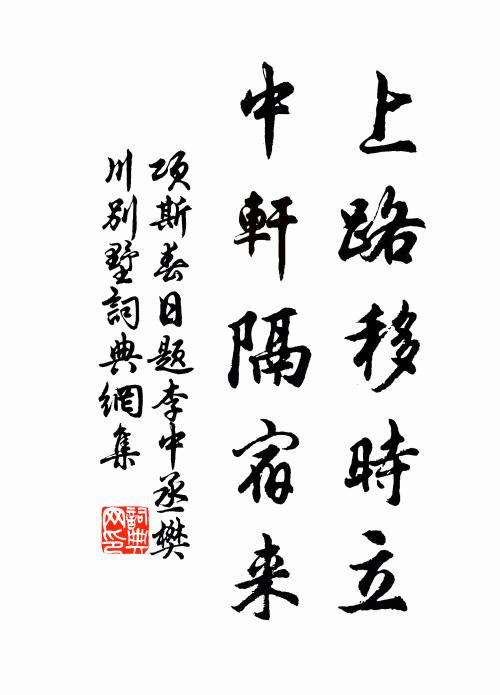 上路移時立
中軒隔宿来
項斯春日題李中丞樊
川别墅詞典網集
詞典
网印